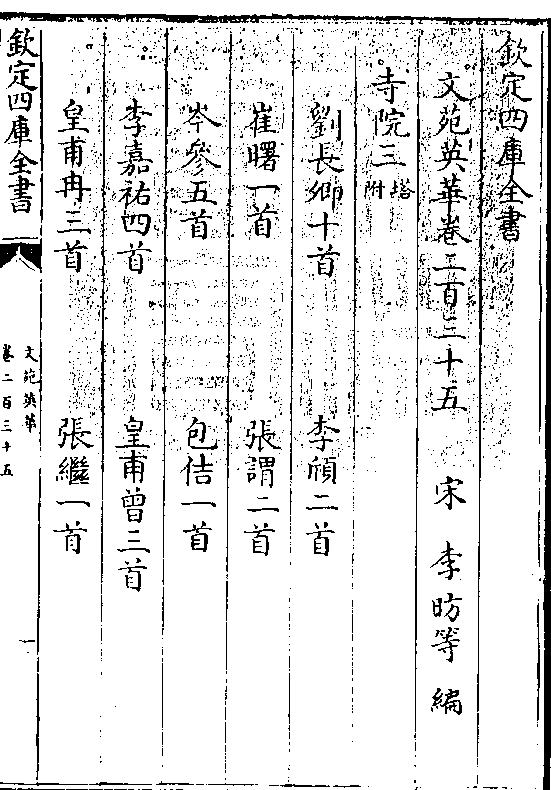 欽定四庫全書
文苑英華卷二百三十五 宋 李昉等 編
寺院三 塔附
劉長卿十首 李頎二首
崔曙一首 張謂二首
岑參五首 包佶一首
李嘉祐四首 皇甫曾三首
皇甫冉三首 張繼一首
欽定四庫全書
文苑英華
卷二百三十五
一